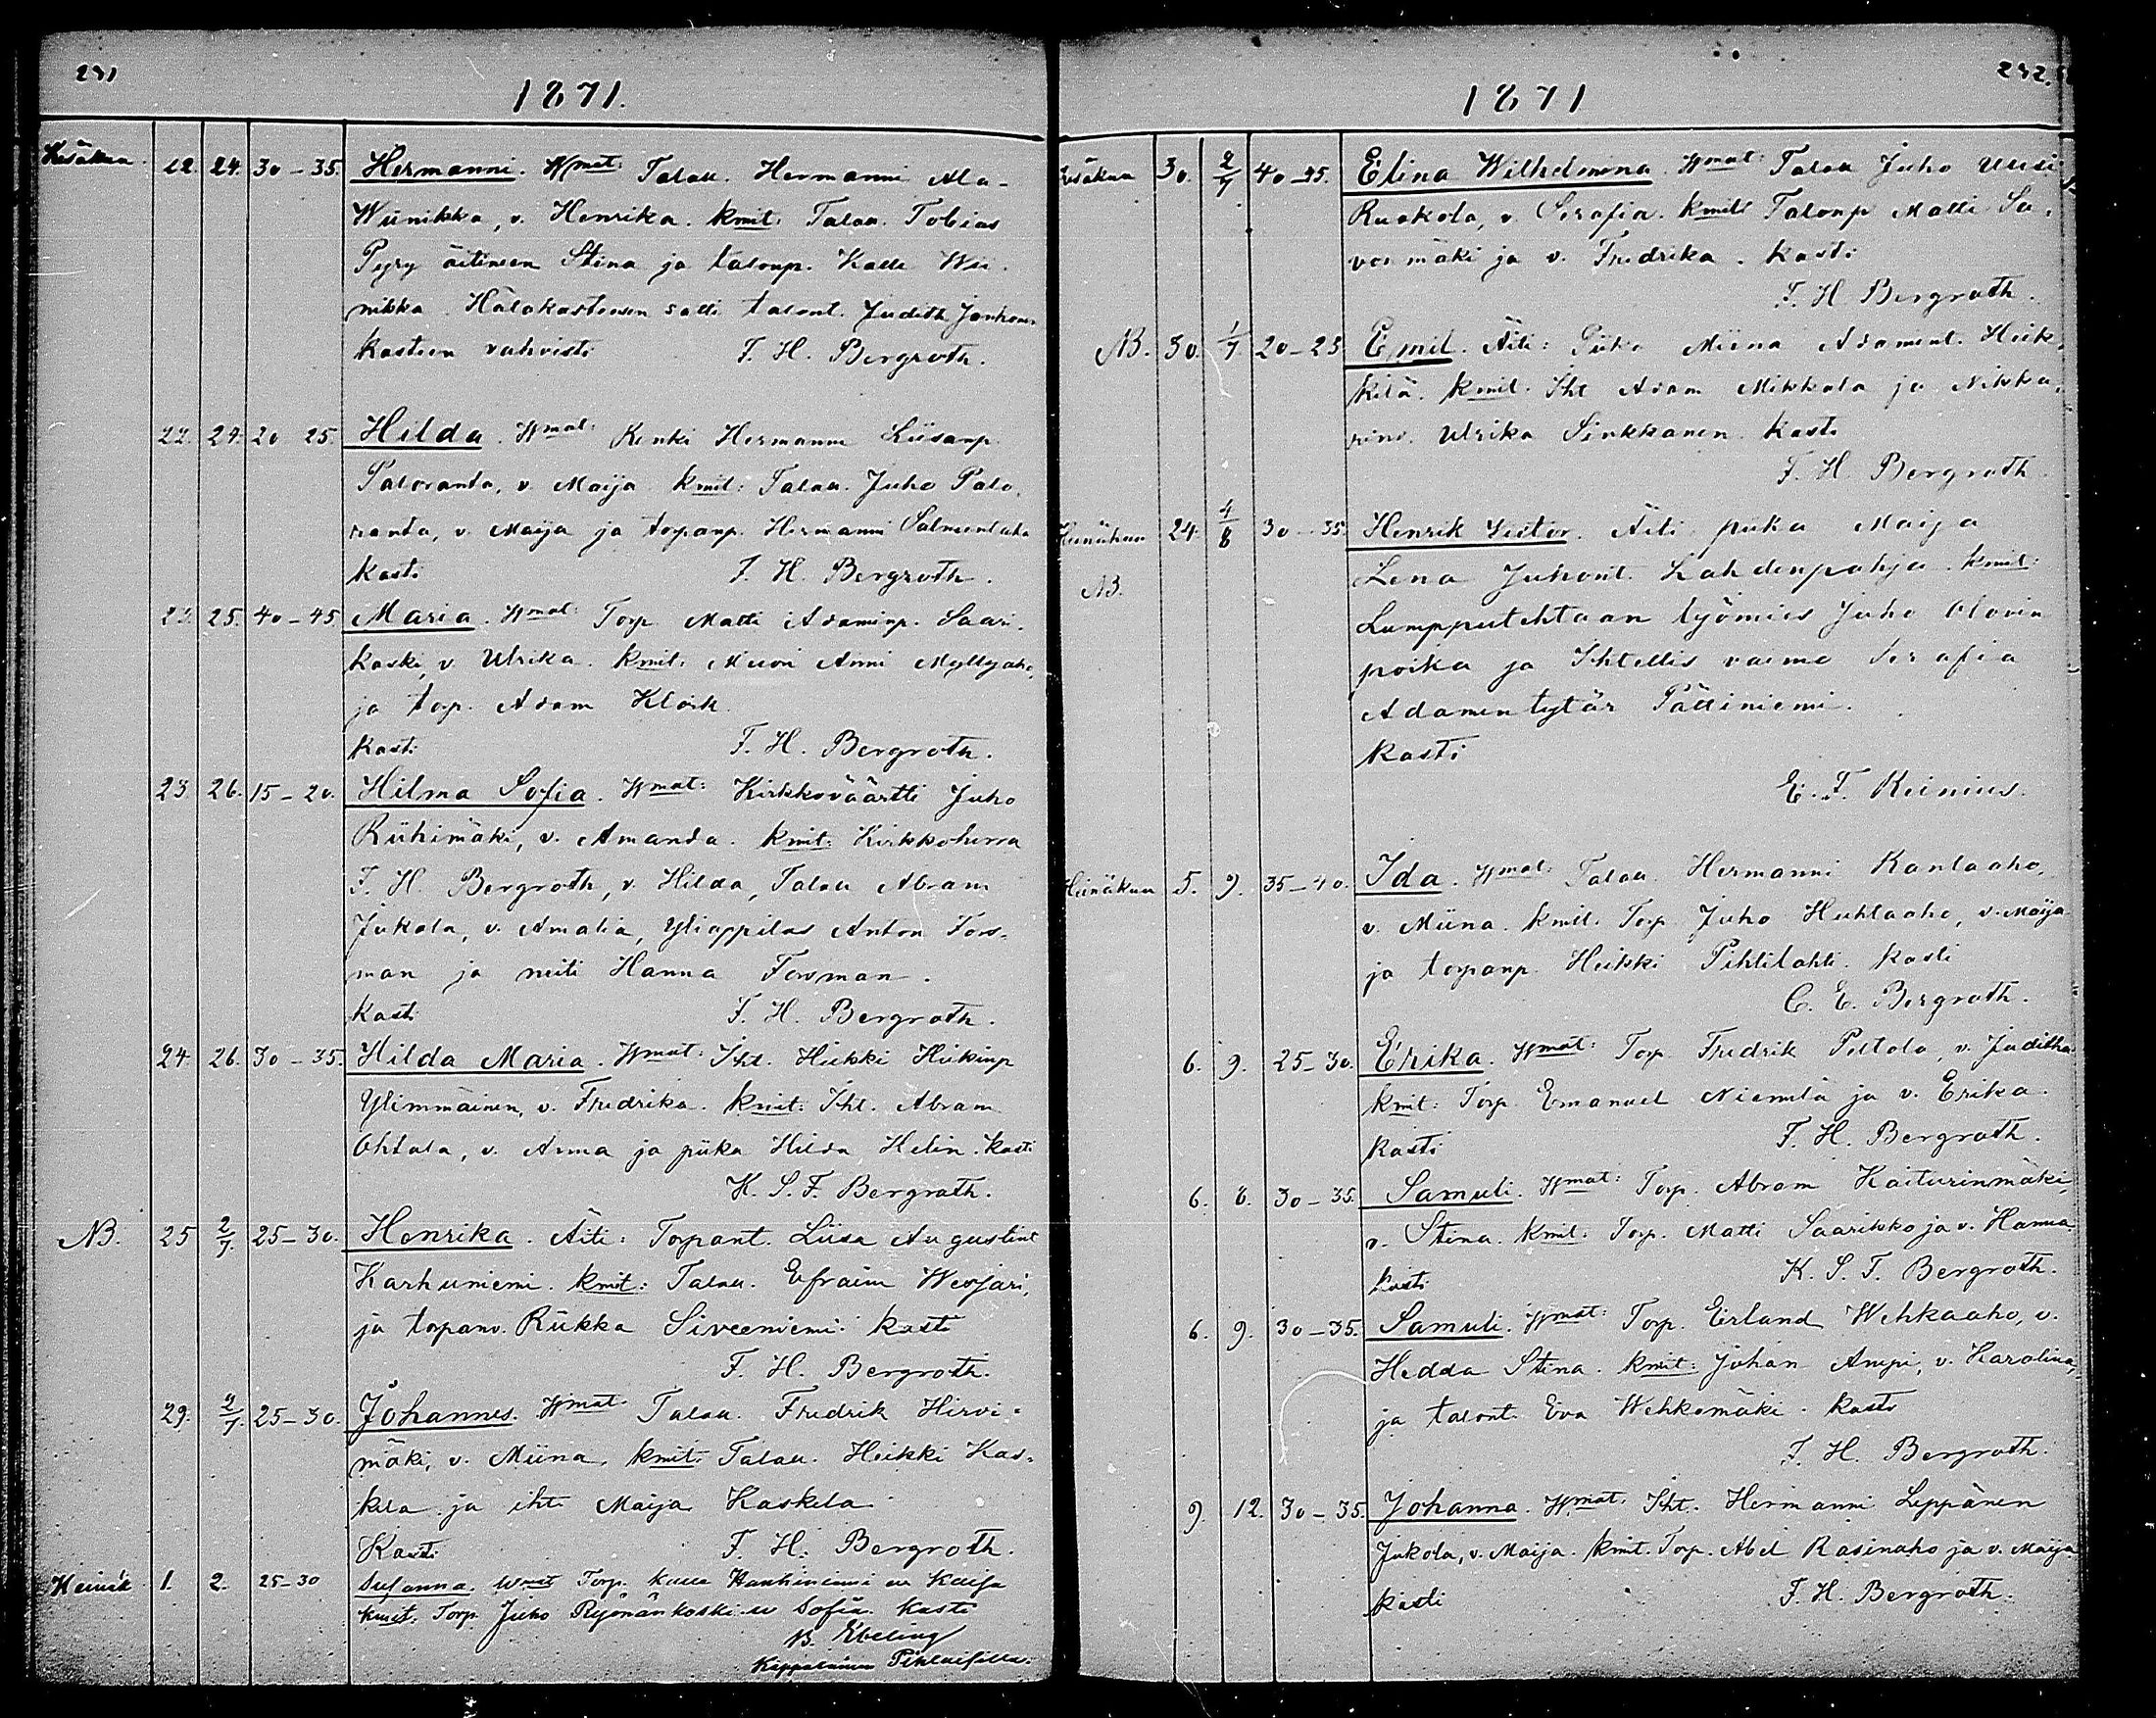 231
1871.
Kesäkuu. 22. 24. 30-35. Hermanni. Wmat: Talau. Hermanni Ala-
Wiinikka, v. Henrika. kmit: Talau. Tobias
Pyry äitineen Stina ja talonp. Kalle Wii-
nikka. Hätäkasteesen salli talont. Judith
kasteen vahvisti F. H. Bergroth.
22. 24. 20 25. Hilda. Wmat: Renki Hermanni Liisanp.
Paloranta, v. Maija. kmit: Talau. Juho Palo-
ranta, v. Maija ja torpanp. Hermanni
Kasti F. H. Bergroth.
23. 25. 40-45. Maria. Wmat: Torp. Matti Adaminp. Saari-
koski, v. Ulrika. kmit: Muori Anni Myllyaho,
ja torp. Adam Klörk.
Kasti F. H. Bergroth.
23. 26. 15-20. Hilma Sofia. Wmat: Kirkkoväärtti Juho
Riihimäki, v. Amanda. kmit: Kirkkoherra
F. H. Bergroth, v. Hilda, Talau Abram
Jukola, v. Amalia, Ylioppilas Anton Fors-
man ja neiti Hanna Forsman.
Kasti F. H. Bergroth.
24. 26. 30-35. Hilda Maria. Wmat: Iht. Heikki Heikinp
Ylimmäinen, v. Fredrika. kmit: Iht. Abram
Ohtola, v. Anna ja piika Hilda Helin. Kasti
K. S. F. Bergroth.
NB. 25 2/7. 25-30. Henrika. Äiti: Torpant. Liisa Augustint
Karhuniemi. kmit: Talau. Efraim Wesjari,
ja torpanv. Riikka Siveeniemi. kasti
F. H. Bergroth.
29. 2/7. 25-30. Johannes. Wmat: Talau. Fredrik Hirvi-
mäki, v. Miina, kmit: Talau. Heikki Kas-
kela ja iht. Maija Kaskela
Kasti F. H. Bergroth.
Heinäk. 1. 2. 25-30 Susanna. Wmat Torp. Kalle Hankiniemi w Kaisa
kmit. Torp. Juho Ryönänkoski w Sofia. Kasti
B. Ebeling
Kappalainen
232.
1871
Kesäkuu 30. 2/7. 40-45. Elina Wilhelmina. Wmat: Talau Juho Uusi
Ruokola, v. Serafia. kmit: Talonp Matti Sa-
vor mäki ja v. Fredrika. Kasti
F. H. Bergroth.
NB. 30. 1/7. 20-25 Emil. Äiti: Piika Miina Adamint. Heik-
kilä. kmit. Iht Adam Mikkola ja Nikka-
rinv. Ulrika Sinkkonen. Kasti
F. H. Bergroth.
Heinäkuu 24. 4/8 30-35. Henrik Victor. Äiti piika Maija
NB. Lena Juhont. Lahdenpohja. kmit:
Lumpputehtaan työmies Juho Olovin
poika ja Ihtellis vaimo Serafia
Adamentytär Pättiniemi.
Kasti
E. F. Reinius.
Heinäkuu 5. 9. 35-40. Ida. Wmat: Talau. Hermanni Kantaaho,
v. Miina. kmit. Torp. Juho Huhtaaho, v. Maija
ja torpanp. Heikki Pihtilahti. Kasti
C. E. Bergroth.
6. 9. 25-30. Erika. Wmat: Torp Fredrik Peltola, v. Juditha
kmit: Torp. Emanuel Niemelä ja v. Erika.
Kasti F. H. Bergroth.
6. 8. 30-35. Samuli. Wmat: Torp. Abram Kaiturinmäki,
v. Stina. kmit. Torp. Matti Saarikko ja v. Hanna
kasti K. S. F. Bergroth.
6. 9. 30-35. Samuli. Wmat: Torp. Erland Wehkaaho, v.
Hedda Stina. kmit: Johan Ampi, v. Karolina,
ja talont. Eva Wehkomäki. Kasti
F. H. Bergroth
9. 12. 30-35. Johanna. Wmat. Iht. Hermanni Leppänen
Jukola, v. Maija. kmit. Torp. Abel Rasinaho ja v. Maija
kasti F. H. Bergroth.